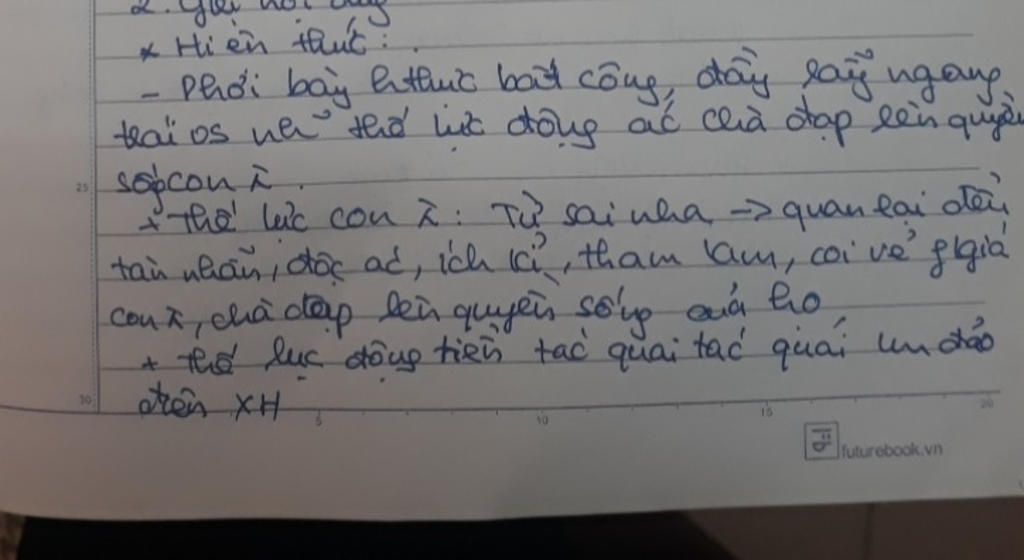 2. Giá nội dung
* Hiện thức:
- Phơi bày hthực bất công, đầy rẫy ngang
trái os nh~ thế lực động ác chà đạp lên quyền
sốg con ~.
+ thế lực con ~: Từ sai nha -> quan lại đều
tàn nhẫn, độc ác, ích kỉ, tham lam, coi vẻ giá
con ~, chà đạp lên quyền sống của họ
+ thế lực động tiền tác quai tác quái đảo
trên XH
25
30
5 10 15 20
futurebook.vn